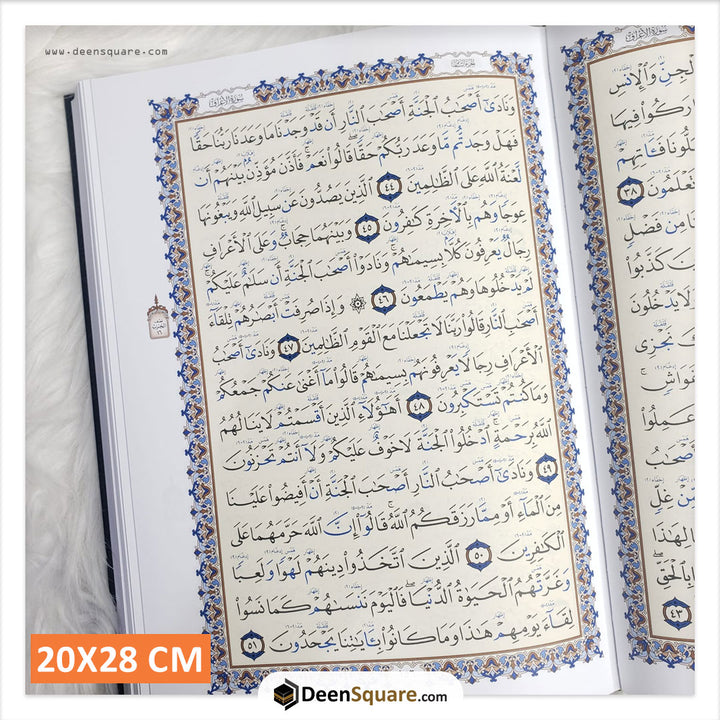 www.deensquare.com
سورة الأعراف
وَنَادَىٰٓ أَصْحَٰبُ ٱلْجَنَّةِ أَصْحَٰبَ ٱلنَّارِ أَن قَدْ وَجَدْنَا مَا وَعَدَنَا رَبُّنَا حَقًّا
فَهَلْ وَجَدتُّم مَّا وَعَدَ رَبُّكُمْ حَقًّا قَالُوا۟ نَعَمْ ۚ فَأَذَّنَ مُؤَذِّنٌۢ بَيْنَهُمْ أَن
لَّعْنَةُ ٱللَّهِ عَلَى ٱلظَّٰلِمِينَ ٤٤ ٱلَّذِينَ يَصُدُّونَ عَن سَبِيلِ ٱللَّهِ وَيَبْغُونَهَا
عِوَجًا وَهُم بِٱلْءَاخِرَةِ كَٰفِرُونَ ٤٥ وَبَيْنَهُمَا حِجَابٌ ۚ وَعَلَى ٱلْأَعْرَافِ
رِجَالٌ يَعْرِفُونَ كُلًّۢا بِسِيمَىٰهُمْ ۚ وَنَادَوْا۟ أَصْحَٰبَ ٱلْجَنَّةِ أَن سَلَٰمٌ عَلَيْكُمْ ۚ
لَمْ يَدْخُلُوهَا وَهُمْ يَطْمَعُونَ ٤٦ ۞ وَإِذَا صُرِفَتْ أَبْصَٰرُهُمْ تِلْقَآءَ
أَصْحَٰبِ ٱلنَّارِ قَالُوا۟ رَبَّنَا لَا تَجْعَلْنَا مَعَ ٱلْقَوْمِ ٱلظَّٰلِمِينَ ٤٧ وَنَادَىٰٓ أَصْحَٰبُ
ٱلْأَعْرَافِ رِجَالًا يَعْرِفُونَهُم بِسِيمَىٰهُمْ قَالُوا۟ مَآ أَغْنَىٰ عَنكُمْ جَمْعُكُمْ
وَمَا كُنتُمْ تَسْتَكْبِرُونَ ٤٨ أَهَٰٓؤُلَآءِ ٱلَّذِينَ أَقْسَمْتُمْ لَا يَنَالُهُمُ
ٱللَّهُ بِرَحْمَةٍ ۚ ٱدْخُلُوا۟ ٱلْجَنَّةَ لَا خَوْفٌ عَلَيْكُمْ وَلَآ أَنتُمْ تَحْزَنُونَ
٤٩ وَنَادَىٰٓ أَصْحَٰبُ ٱلنَّارِ أَصْحَٰبَ ٱلْجَنَّةِ أَنْ أَفِيضُوا۟ عَلَيْنَا
مِنَ ٱلْمَآءِ أَوْ مِمَّا رَزَقَكُمُ ٱللَّهُ ۚ قَالُوٓا۟ إِنَّ ٱللَّهَ حَرَّمَهُمَا عَلَى
ٱلْكَٰفِرِينَ ٥٠ ٱلَّذِينَ ٱتَّخَذُوا۟ دِينَهُمْ لَهْوًا وَلَعِبًا
وَغَرَّتْهُمُ ٱلْحَيَوٰةُ ٱلدُّنْيَا ۚ فَٱلْيَوْمَ نَنسَىٰهُمْ كَمَا نَسُوا۟
لِقَآءَ يَوْمِهِمْ هَٰذَا وَمَا كَانُوا۟ بِـَٔايَٰتِنَا يَجْحَدُونَ ٥١
سورة الأعراف
ٱلْجِنِّ وَٱلْإِنسِ
فِيهَا
فَـَٔاتِهِمْ
٣٨
مِن فَضْلٍ
كَذَّبُوا۟
لَا يَدْخُلُونَ
نَجْزِى
غَوَاشٍ ۚ
عَمِلُوا۟
أَصْحَٰبُ
مِّنْ غِلٍّ
لِهَٰذَا
بِٱلْحَقِّ ۖ
٤٣
20X28 CM
DeenSquare.com